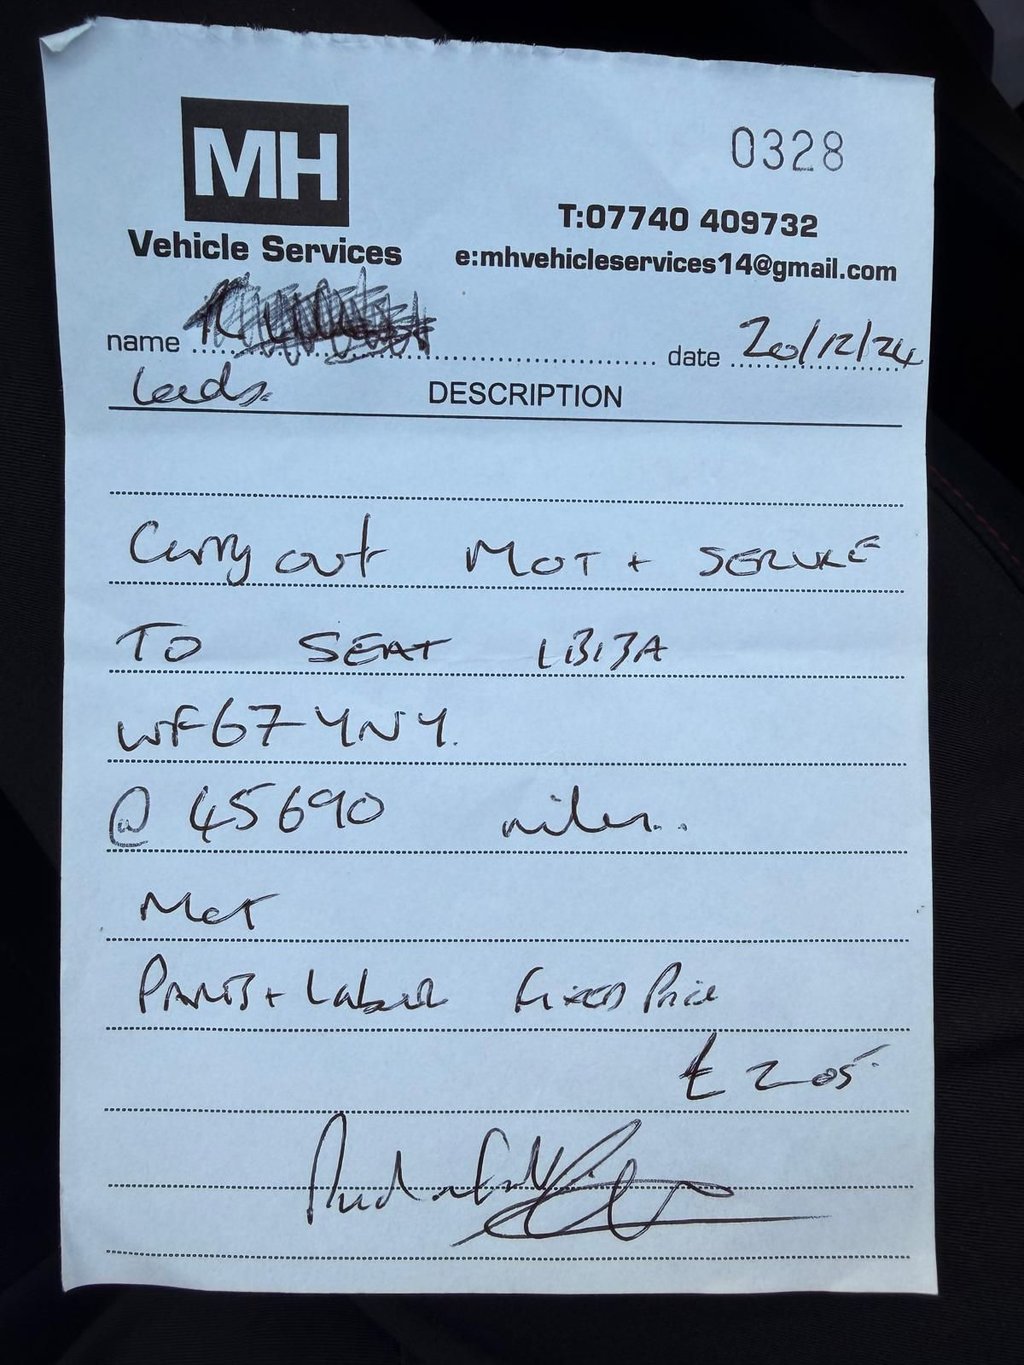 MH
0328
Vehicle Services
T:07740 409732
e:mhvehicleservices14@gmail.com
name
date 20/12/24
Leeds.
DESCRIPTION
Carry out MOT + SERVICE
TO SEAT IBIZA
WF67 YNY.
@ 45690 miles..
MOT
PARTS + Labour Fixed Price
£205